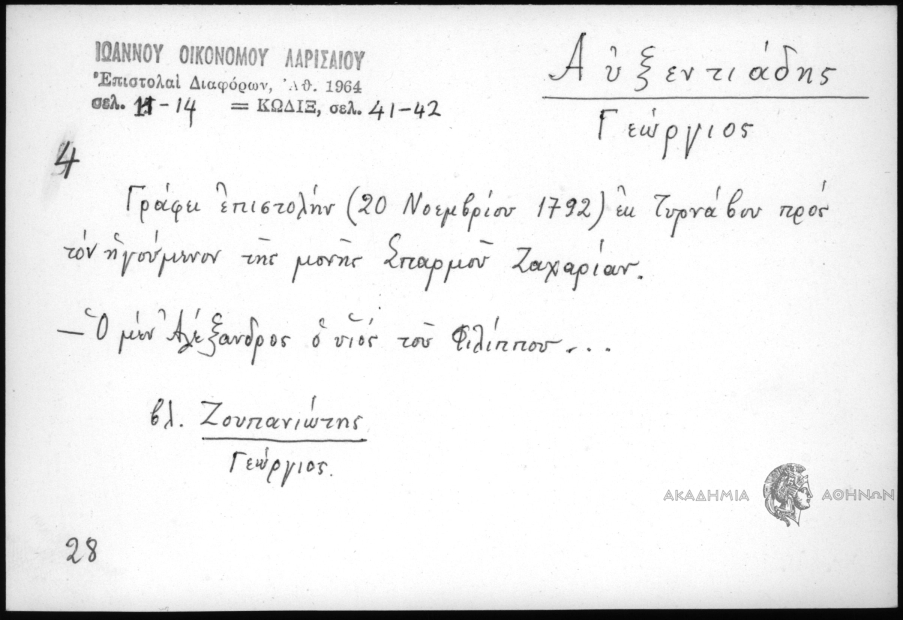 ΙΩΑΝΝΟΥ ΟΙΚΟΝΟΜΟΥ ΛΑΡΙΣΑΙΟΥ
Ἐπιστολαὶ Διαφόρων, Ἀθ. 1964
σελ. 11-14 = ΚΩΔΙΞ, σελ. 41-42
Αὐξεντιάδης
Γεώργιος
4
Γράφει ἐπιστολήν (20 Νοεμβρίου 1792) ἐκ Τυρνάβου πρός
τόν ἡγούμενον τῆς μονῆς Σπαρμοῦ Ζαχαρίαν.
— Ὁ μέν Ἀλέξανδρος ὁ υἱός τοῦ Φιλίππου...
βλ. Ζουπανιώτης
Γεώργιος.
ΑΚΑΔΗΜΙΑ ΑΘΗΝΩΝ
28